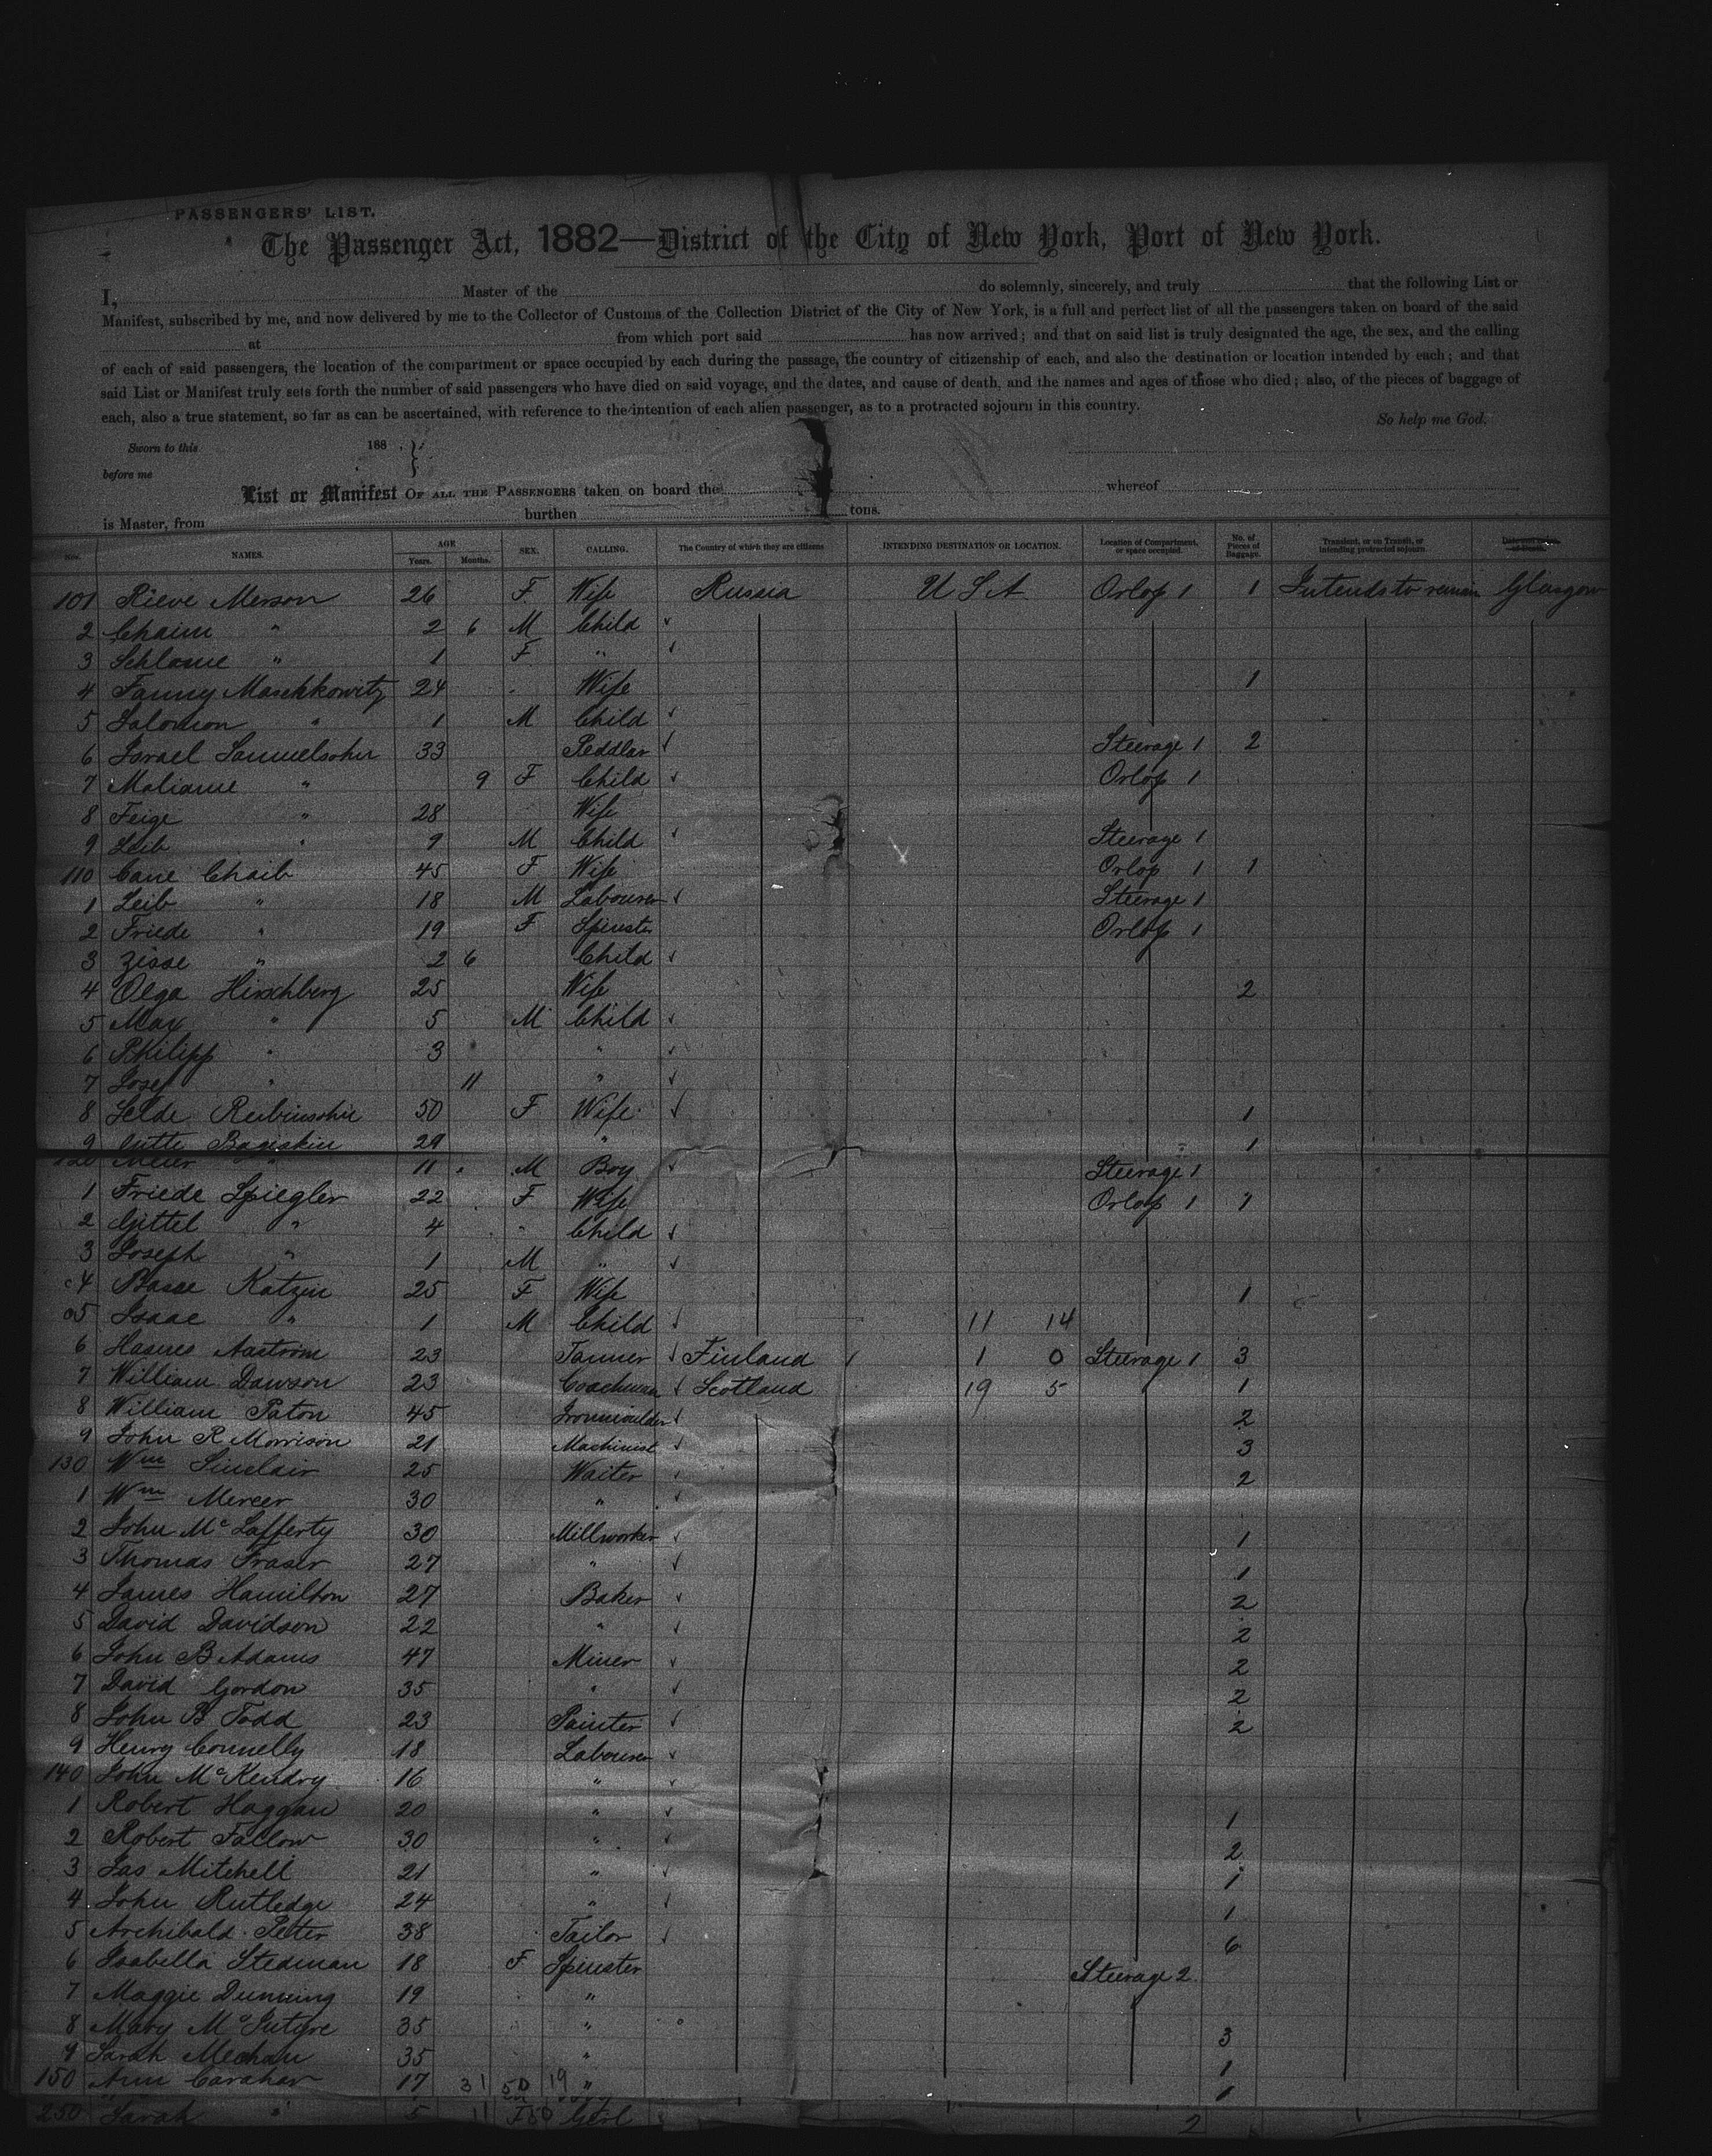 PASSENGERS' LIST.
The Passenger Act, 1882—District of the City of New York, Port of New York.
I, Master of the do solemnly, sincerely, and truly that the following List or
Manifest, subscribed by me, and now delivered by me to the Collector of Customs of the Collection District of the City of New York, is a full and perfect list of all the passengers taken on board of the said
at from which port said has now arrived; and that on said list is truly designated the age, the sex, and the calling
of each of said passengers, the location of the compartment or space occupied by each during the passage, the country of citizenship of each, and also the destination or location intended by each; and that
said List or Manifest truly sets forth the number of said passengers who have died on said voyage, and the dates, and cause of death, and the names and ages of those who died; also, of the pieces of baggage of
each, also a true statement, so far as can be ascertained, with reference to the intention of each alien passenger, as to a protracted sojourn in this country.
So help me God.
Sworn to this 188
before me
List or Manifest OF ALL THE PASSENGERS taken on board the whereof
is Master, from burthen tons.
Nos. NAMES. AGE Years. Months. SEX. CALLING. The Country of which they are citizens INTENDING DESTINATION OR LOCATION. Location of Compartment, or space occupied. No. of Pieces of Baggage. Transient, or on Transit, or intending protracted sojourn.
101 Rieve Merson 26 F Wife Russia U S A Orlop 1 1 Intends to remain Glasgow
2 Chaim " 2 6 M Child
3 Schlome " 1 F "
4 Fanny Maschkowitz 24 Wife 1
5 Salomon " 1 M Child
6 Israel Samuelsohn 33 Peddlar Steerage 1 2
7 Maliame " 9 F Child Orlop 1
8 Feige " 28 Wife
9 Leib " 9 M Child Steerage 1
110 Cane Chaib 45 F Wife Orlop 1 1
1 Leib " 18 M Labourer Steerage 1
2 Friede " 19 F Spinster Orlop 1
3 Zisse " 2 6 Child
4 Olga Hirschberg 25 Wife 2
5 Max " 5 M Child
6 Philipp " 3 "
7 Josef " 11 "
8 Selde Reibinsohn 50 F Wife 1
9 29 " 1
120 Meier " 11 M Boy Steerage 1
1 Friede Spiegler 22 F Wife Orlop 1 1
2 Gittel " 4 " Child
3 Joseph " 1 M "
4 Basse Katzin 25 F Wife 1
5 Isaac " 1 M Child 11 14
6 Hasnes Aastrom 23 Tanner Finland 1 0 Steerage 1 3
7 William Dawson 23 Coachman Scotland 19 5 1
8 William Paton 45 Ironmoulder 2
9 John R Morrison 21 Machinist 3
130 Wm Sinclair 25 Waiter 2
1 Wm Mercer 30 "
2 John McLafferty 30 Millworker 1
3 Thomas Fraser 27 " 1
4 James Hamilton 27 Baker 2
5 David Davidson 22 " 2
6 John B Adams 47 Miner 2
7 David Gordon 35 " 2
8 John B Todd 23 Painter 2
9 Henry Connelly 18 Labourer
140 John McKendry 16 "
1 Robert Haggan 20 " 1
2 Robert Fallow 30 " 2
3 Jas Mitchell 21 " 1
4 John Rutledge 24 " 1
5 Archibald Peter 38 Tailor 6
6 Isabella Stedman 18 F Spinster Steerage 2
7 Maggie Dunning 19 "
8 Mary McIntyre 35 " 3
9 Sarah Mechan 35 " 1
150 Ann Carahar 17 31 50 19 " 1
250 Sarah " 5 11 F Girl 2